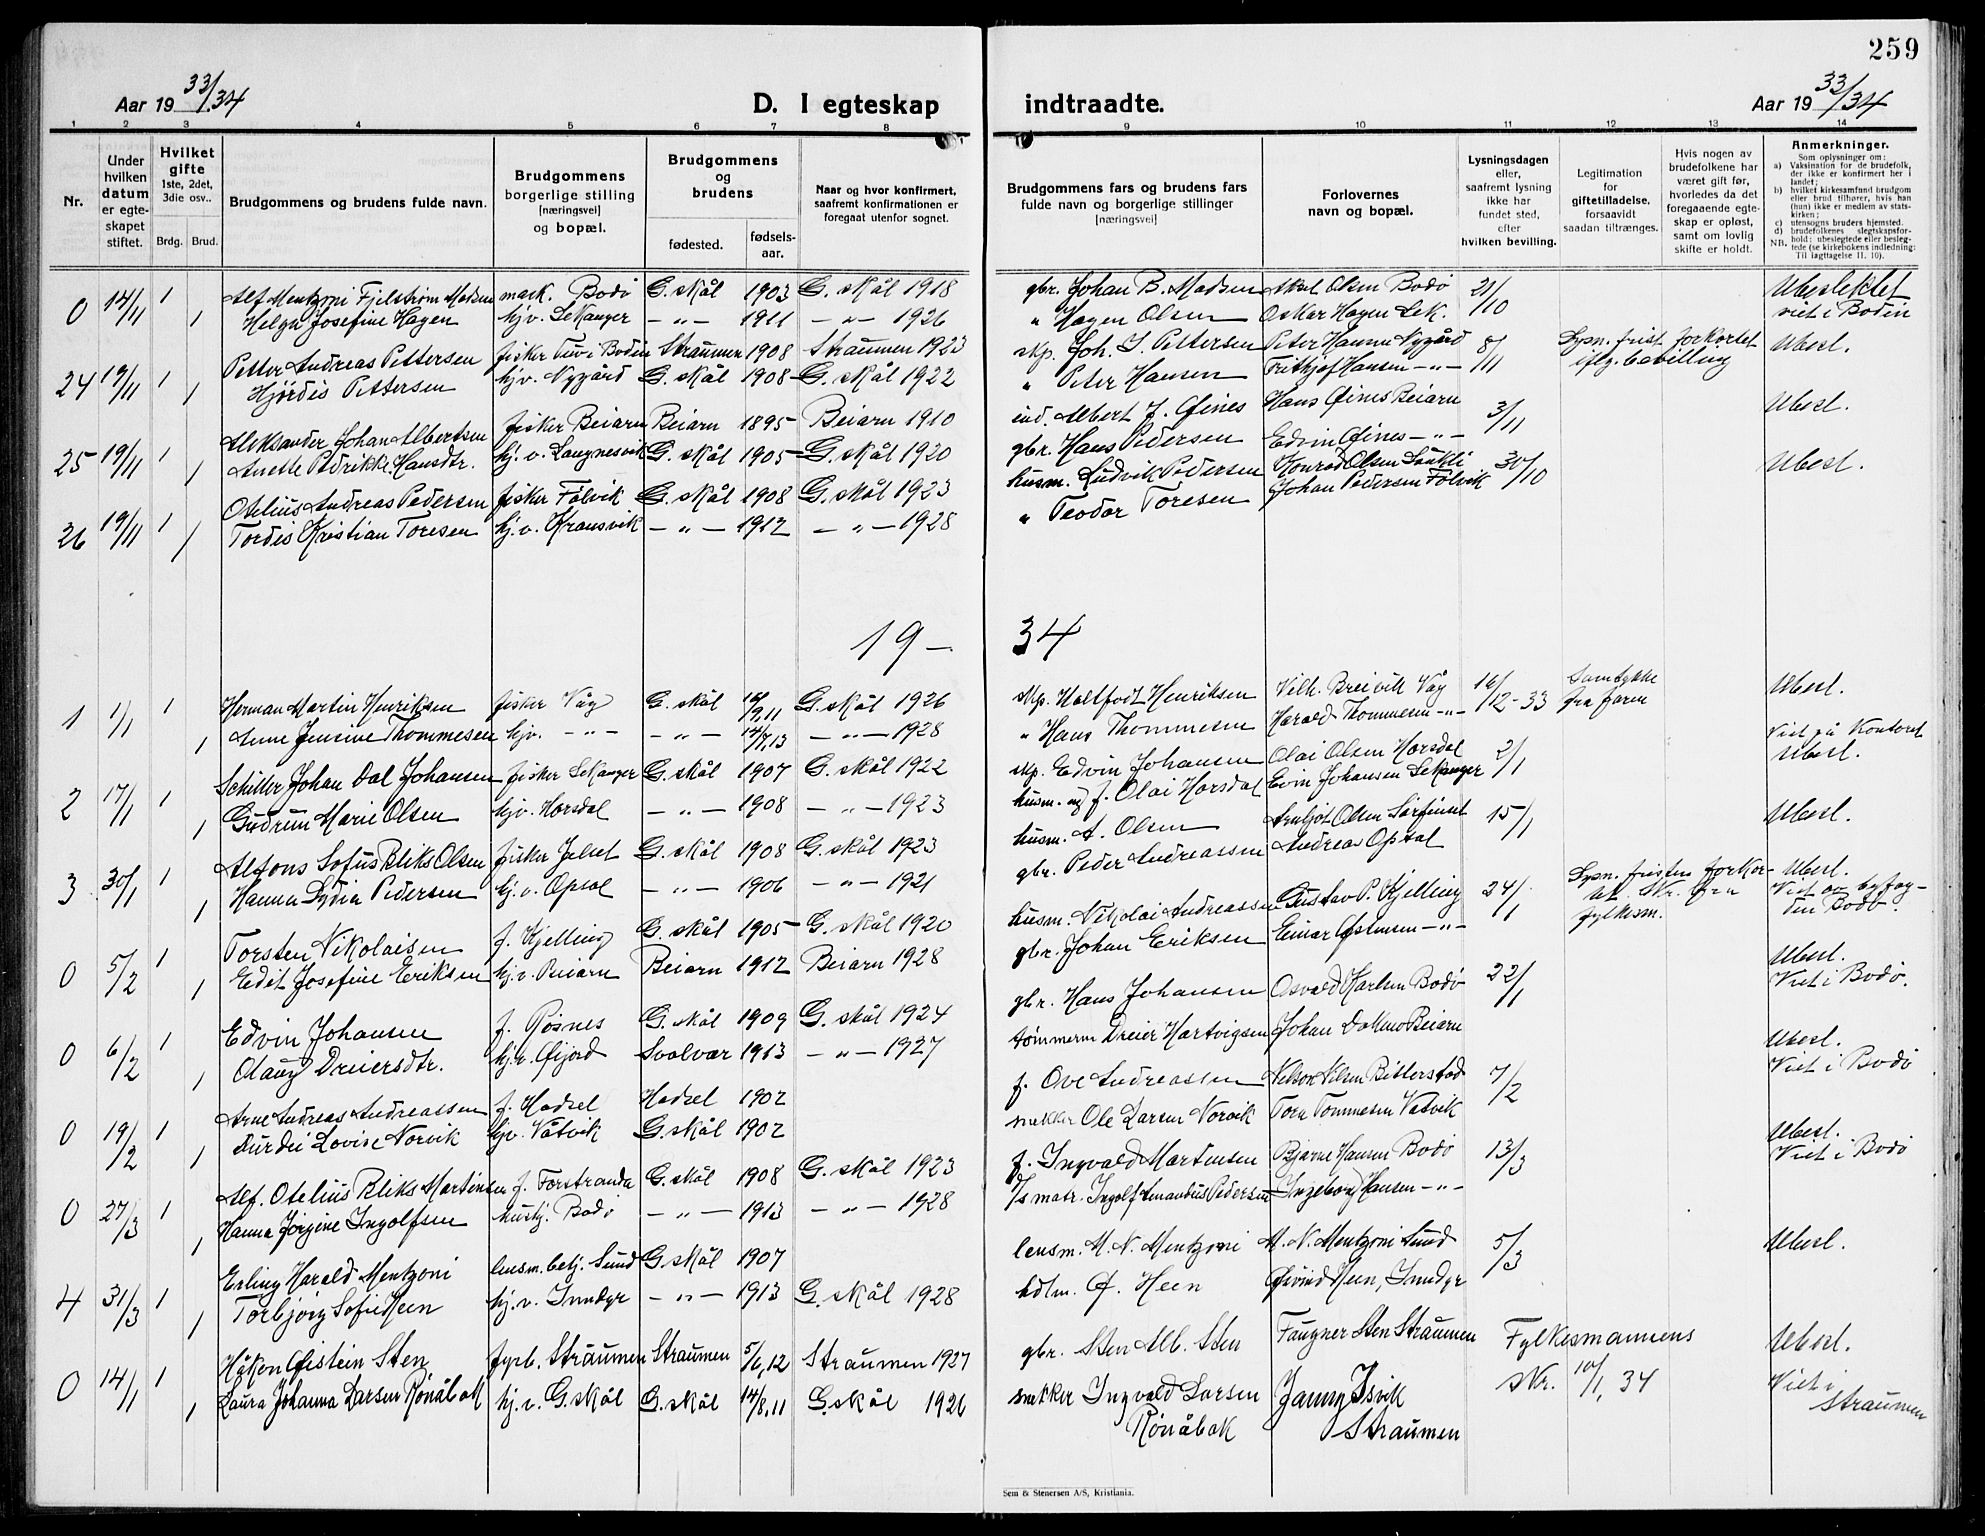 259
Aar 19 33/34
D. I egteskap
indtraadte.
Aar 19 33/34
1 2 3 4 5 6 7 8 9 10 11 12 13 14
Nr.
Under hvilken datum er egteskapet stiftet.
Hvilket gifte 1ste, 2det, 3die osv..
Brdg. Brud.
Brudgommens og brudens fulde navn.
Brudgommens borgerlige stilling [næringsvei] og bopæl.
Brudgommens og brudens
fødested.
fødselsaar.
Naar og hvor konfirmert, saafremt konfirmationen er foregaat utenfor sognet.
Brudgommens fars og brudens fars fulde navn og borgerlige stillinger [næringsvei]
Forlovernes navn og bopæl.
Lysningsdagen eller, saafremt lysning ikke har fundet sted, efter hvilken bevilling.
Legitimation for giftetilladelse, forsaavidt saadan tiltrænges.
Hvis nogen av brudefolkene har været gift før, hvorledes da det foregaaende egteskap er opløst, samt om lovlig skifte er holdt.
Anmerkninger.
Som oplysninger om:
a) Vaksination for de brudefolk, der ikke er konfirmert her i landet;
b) hvilket kirkesamfund brudgom eller brud tilhører, hvis han (hun) ikke er medlem av statskirken;
c) utensogns bruders hjemsted.
d) brudefolkenes slegtskapsforhold: ubeslegtede eller beslegtede (se kirkebokens indledning:
NB. Til iagttagelse II. 10).
0 14/11 1 Alf Mentzoni Fjelstrøm Madsen mask. Bodø G. skål 1903 G. skål 1918 gbr. Johan B. Madsen Olsen Bodø 21/10 Ubeslektet
1 Helga Josefine Hagen hjv. Sekanger — „ — 1911 — „ — 1926 „ Hagen Olsen Oskar Hagen Sek. viet i Bodin
24 19/11 1 Petter Andreas Pettersen fisker Tuv i Bodin Straumen 1908 Straumen 1923 skp. Joh. J. Pettersen Peter Hansen Nygård 8/11 Lysn. frist forkortet Ubesl.
1 Hjørdis Pettersen hjv. Nygård G. skål 1908 G. skål 1922 „ Peter Hansen Frithjof Hansen — „ — iflg. bevilling
25 19/11 1 Aleksander Johan Albertsen fisker Beiarn Beiarn 1895 Beiarn 1910 ind. Albert J. Øines Hans Øines Beiarn 3/11 Ubesl.
1 Anette Pedrikke Hansdtr. hj. v. Langnesvik G. skål 1905 G. skål 1920 gbr. Hans Pedersen Edvin Øines — „ —
26 19/11 1 Otelius Andreas Pedersen fisker Følvik G. skål 1908 G. skål 1923 husm. Ludvik Pedersen Konrad Olsen 30/10 Ubesl.
1 Tordis Kristian Toresen hj. v. Kransvik — „ — 1912 — „ — 1928 „ Teodor Toresen Johan Pedersen Følvik
19 — 34
1 1/1 1 Herman Martin Henriksen fisker Våg G. skål /9,11 G. skål 1926 skp. Waltfodt Henriksen Vilh. Breivik Våg 16/12-33 Samtykke Ubesl.
1 Anne Jensine Thommesen hjv. — „ — — „ — 14/7,13 — „ — 1928 „ Hans Thommesen Harald Thommesen — „ — fra faren
2 17/1 1 Schiller Johan Dal Johansen fisker Sekanger G. skål 1907 G. skål 1922 skp. Edvin Johansen Olai Olsen Horsdal 2/1 Viet på Kontoret Ubesl.
1 Gudrun Marie Olsen hjv. Horsdal — „ — 1908 — „ — 1923 husm. og f. Olai Horsdal Evin Johansen Sekanger
3 30/1 1 Alfons Sofus Bliks Olsen fisker G. skål 1908 G. skål 1923 husm. A. Olsen Arnljot Olsen Sørfinset 15/1 Ubesl.
1 Hanna Lydia Pedersen hj. v. Opsal — „ — 1906 — „ — 1921 gbr. Peder Andreassen Andreas Opsal
0 5/2 1 Torsten Nikolaisen f. Kjelling G. skål 1905 G. skål 1920 husm. Nikolai Andreassen Gustav P. Kjelling 24/1 Lysn. fristen forkortet Skr. fra fylkesm. Ubesl. Viet av byfogden Bodø.
1 Edit Josefine Eriksen hj. v. Beiarn Beiarn 1912 Beiarn 1928 gbr. Johan Eriksen Einar — „ —
0 6/2 1 Edvin Johansen f. Røsnes G. skål 1909 G. skål 1924 gbr. Hans Johansen Osvald Karlsen Bodø 22/1 Ubesl. Viet i Bodø.
1 Olaug Dreiersdtr. hj. v. Øijord Svolvær 1913 — „ — 1927 tømmerm Dreier Hartvigsen Johan Dokmo Beiarn
0 19/2 1 Arne Andreas Andreassen f. Hadsel Hadsel 1902 f. Ove Andreassen Nelson Nilsen Bitterstad 7/2 Ubesl. Viet i Bodø
1 Lovise Norvik hjv. Våtvik G. skål 1902 snekker Ole Larsen Norvik Tommesen Vatvik
0 27/3 1 Alf. Otelius Bliks Martinsen f. Forstranda G. skål 1908 G. skål 1923 f. Ingvald Martinsen Bjarne Hansen Bodø 13/3 Ubesl. Viet i Bodø
1 Hanna Jørgine Ingolfsen hushj. Bodø — „ — 1913 — „ — 1928 D/S matr. Ingolf Amandus Pedersen Ingeborg Hansen — „ —
4 31/3 1 Erling Harald Mentzoni lensm. betj. Sund G. skål 1907 lensm. M. N. Mentzoni M. N. Mentzoni Sund 5/3 Ubesl.
1 Torbjørg Sofie Heen hj. v. Inndyr — „ — 1913 G. skål 1928 hdlm. Ø. Heen Øivind Heen, Inndyr
0 14/1 1 Håkon Øistein Sten fyrb. Straumen Straumen 5/6,12 Straumen 1927 gbr. Sten Alb. Sten Faugner Sten Straumen Fylkesmannens Ubesl.
1 Laura Johanna Larsen Rönåbak hj. v. G. skål G. skål 14/8,11 G. skål 1926 snekker Ingvald Larsen Rönåbak Janny Isvik Straumen Skr. 10/1, 34 Viet i Straumen
Sem & Stenersen A/S, Kristiania.